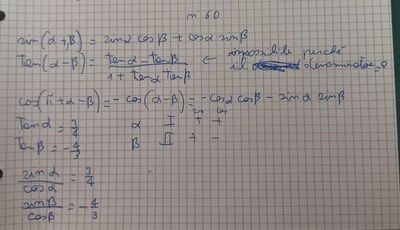 n° 60
sin(α+β) = sinα cosβ + cosα sinβ
tan(α-β) = (tanα - tanβ) / (1 + tanα tanβ) ← impossibile perché il denominatore 0
cos(π+α-β) = -cos(α-β) = -cosα cosβ - sinα sinβ
sin cos
tanα = 3/4 α I + +
tanβ = -4/3 β II + -
sinα/cosα = 3/4
sinβ/cosβ = -4/3